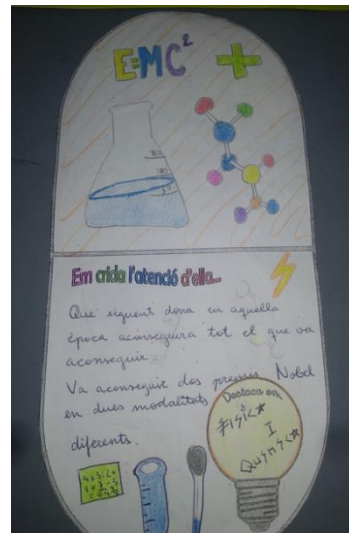 E=MC²
Em crida l'atenció d'ella...
Que siguent dona en aquella
època aconseguira tot el que va
aconseguir.
Va aconseguir dos premis Nobel
en dues modalitats
diferents.
Destaca en...
Física
I
Química